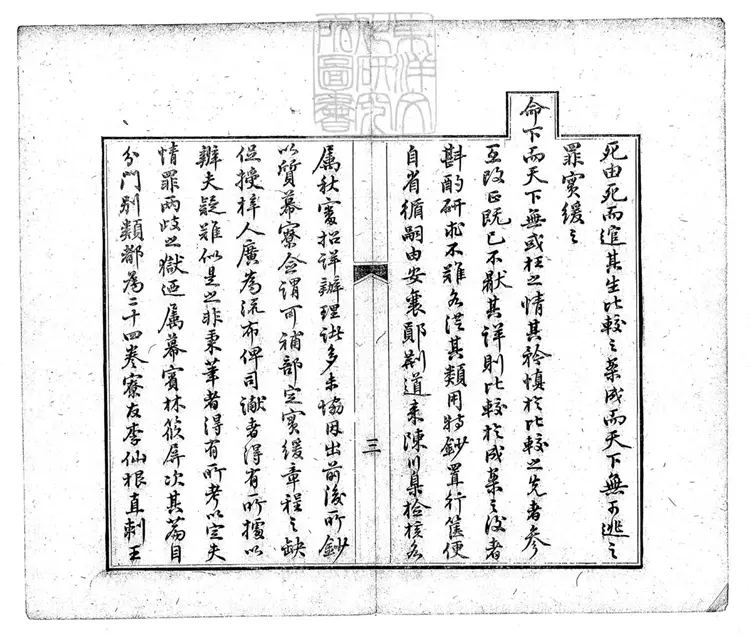 死由死而追其生比較之案成而天下無可逃之
罪實緩之
命下而天下無或枉之情其矜慎於比較之先者參
互改正既已不厭其詳則比較於成案之後者
斟酌研求不難各從其類用特鈔置行篋便
自省循嗣由安襄鄖荊道來陳川臬檢核各
三
屬秋審招詳辦理諸多未協因出前後所鈔
以質幕寮僉謂可補部定實緩章程之缺
促授梓人廣為流布俾司讞者得有所據以
辦夫疑難似是之非秉筆者得有所考以定夫
情罪兩歧之獄迺屬幕賓林筱屏次其篇目
分門別類都為二十四卷寮友李仙根直刺王
東洋文化研究所圖書